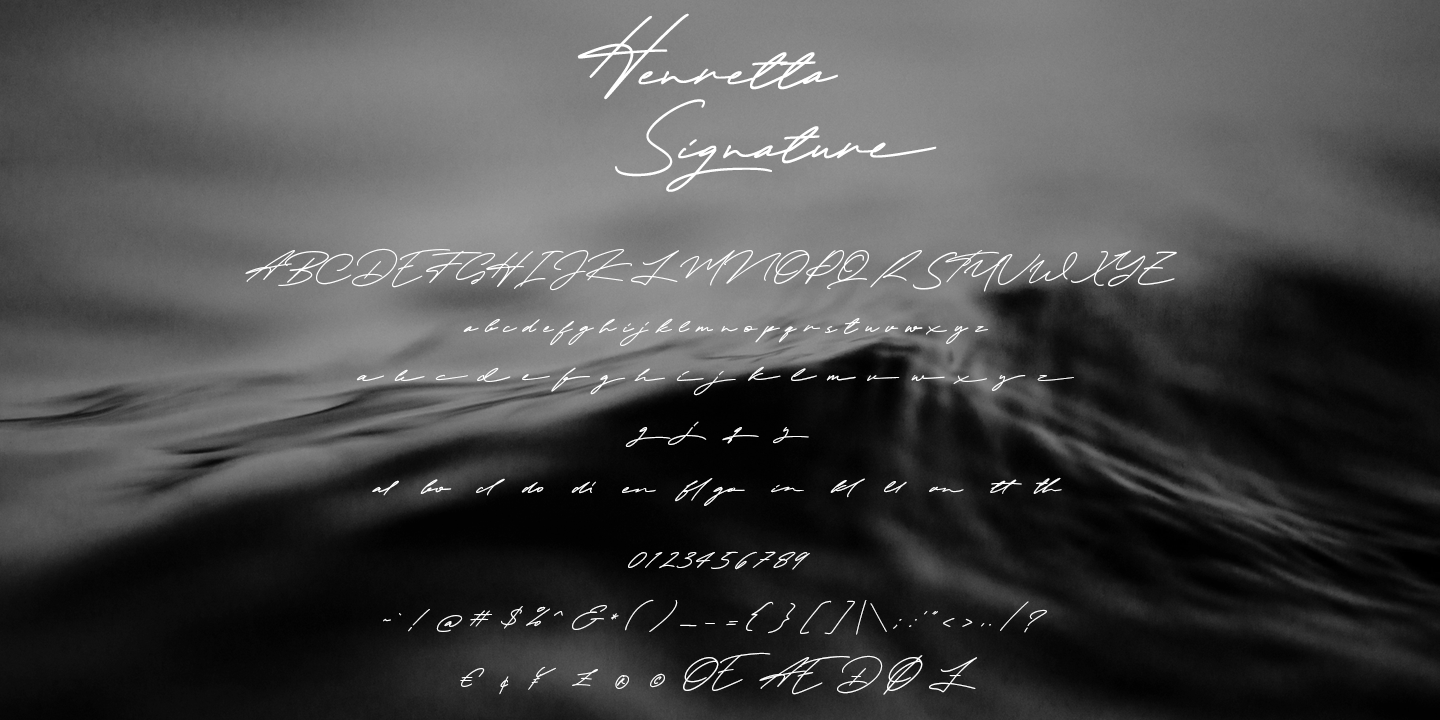 Henretta
Signature
ABCDEFGHIJKLMNOPQRSTUVWXYZ
abcdefghijklmnopqrstuvwxyz
a b c d e f g h i j k l m v w x y z
g j q y
al bo cl do di en fl go in kl ll on tt th
0123456789
~`!@#$%^&*()_-={}[]|\;:'"<>,./?
€ ¢ ¥ £ ® © Œ Æ Ð Ø Ł